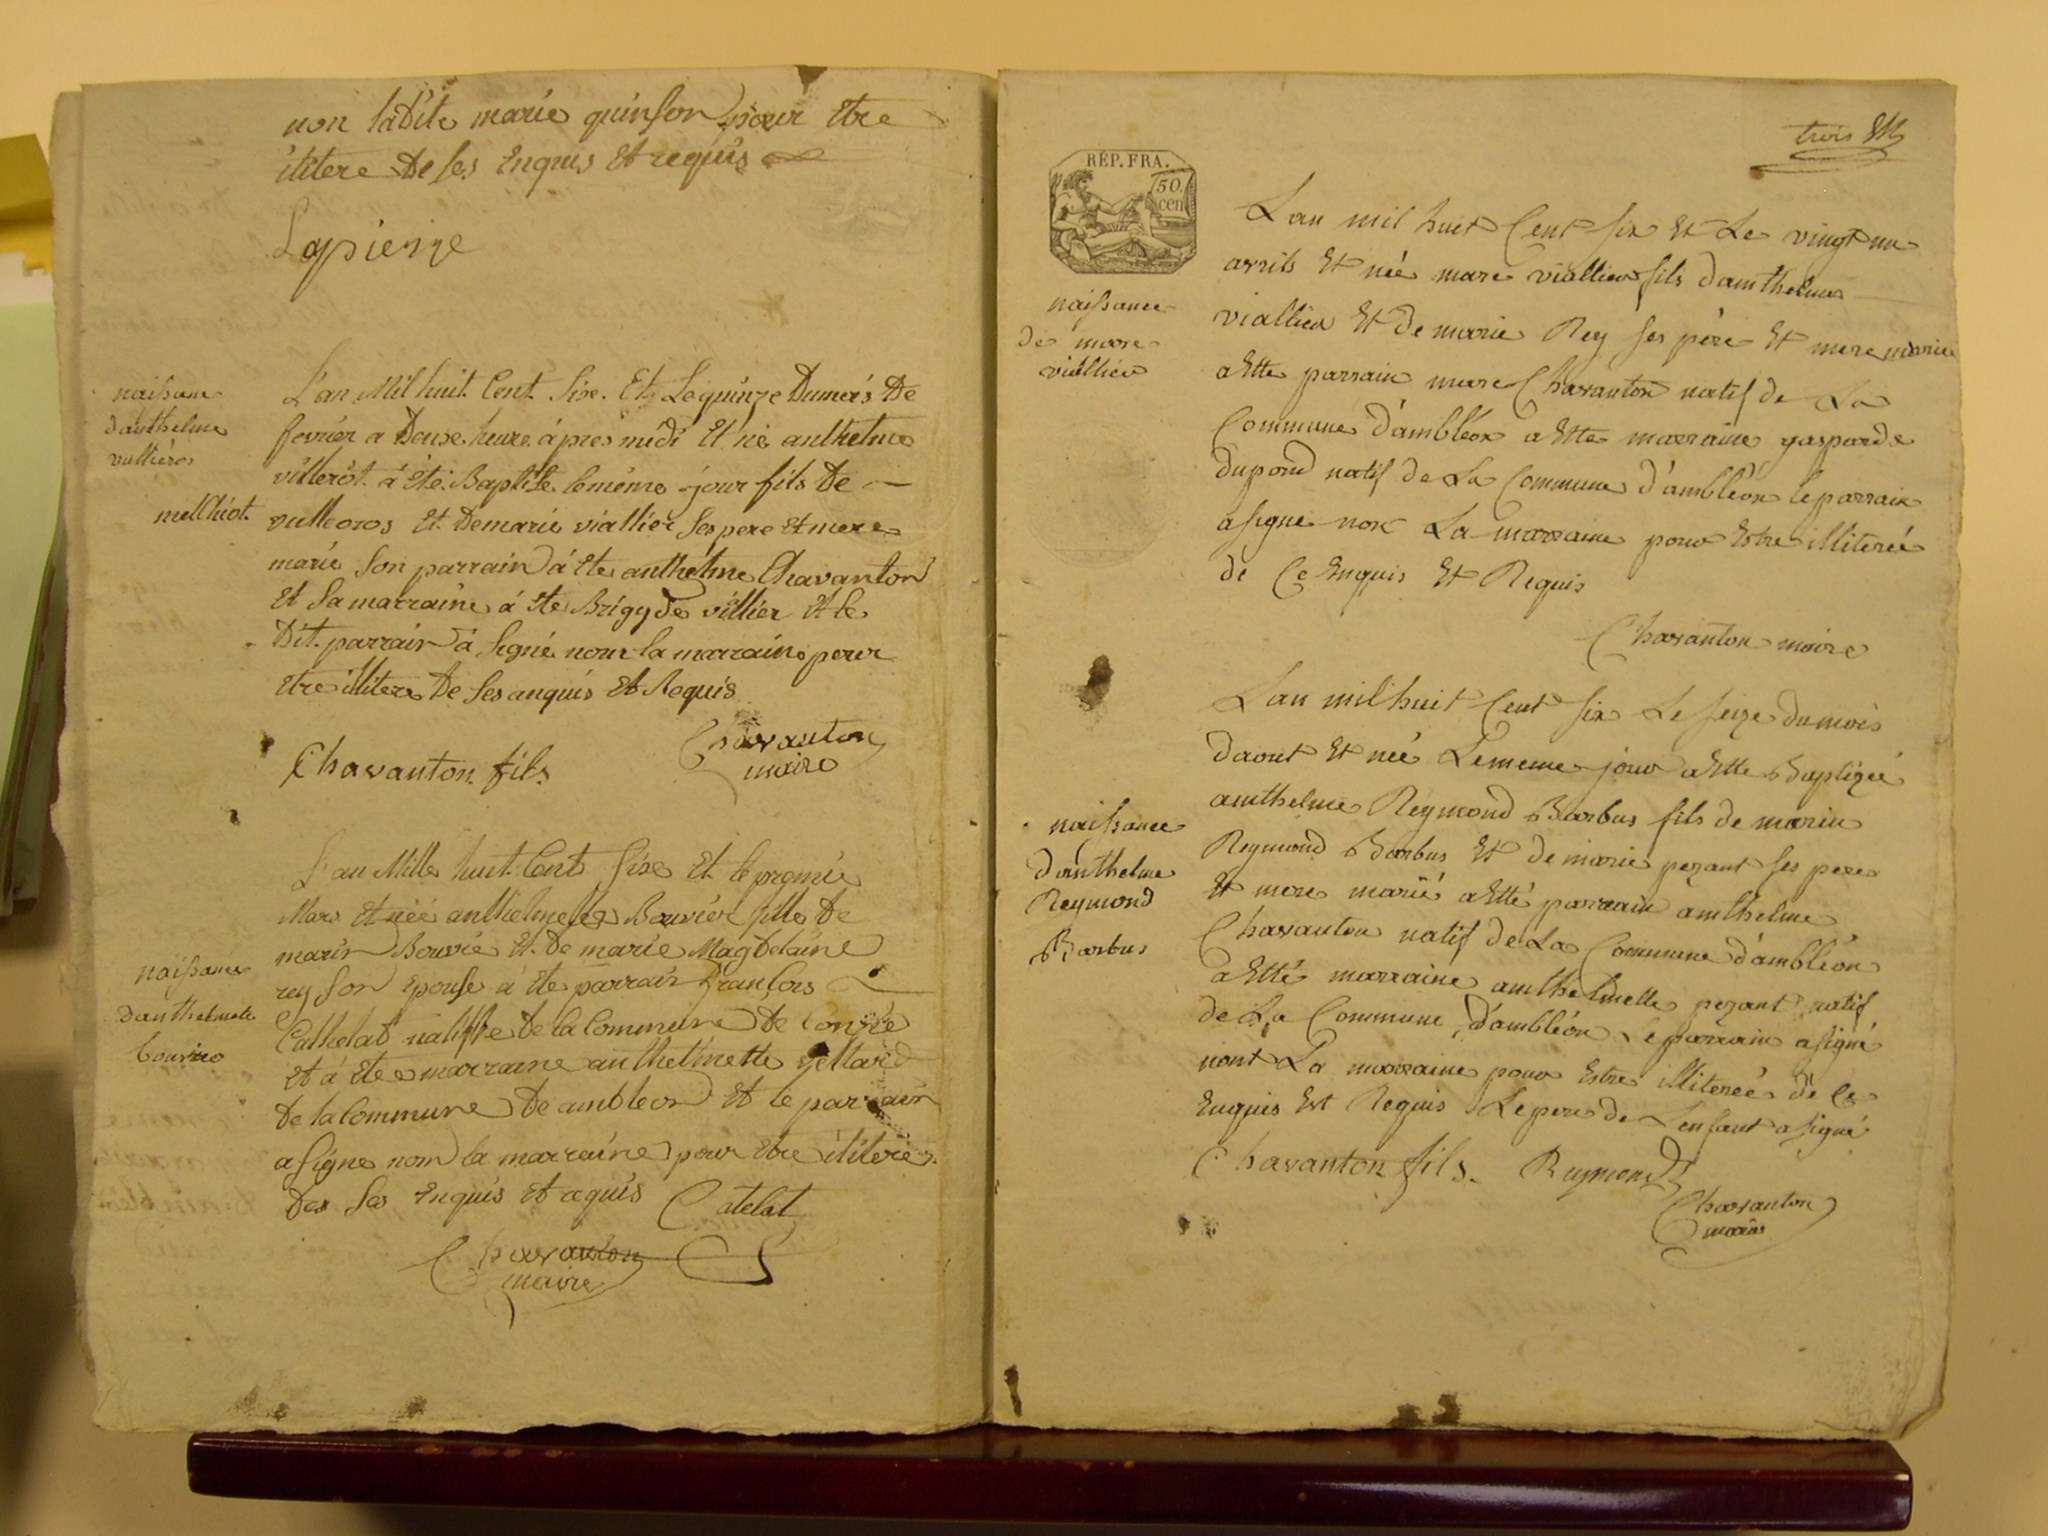 non ladite marie quinson pour Etre
ilitere De ses Enquis Et requis
Lapierre
naissance
danthelme
vullieros
melhiot
L'an Mil huit Cent Six Et Le quinze Dumois De
fevrier a Douse heure après midi Et né anthelme
villerot à été Baptise le même jour fils De
vulleoros Et De marie viallier ses pere et mere
marié son parrain à Ete anthelme Chavanton
Et sa marraine à Ete Brigyde villier Et le
Dit parrain à signé nom la marraine pour
Etre ilitere De ses anquis Et Requis
Chavanton fils
Chavanton
maire
naissance
danthelmete
bouvier
L'an Mille huit Cent Six Et le premie
Mars Et néé anthelmette Bouvier fille De
marin Bouvié Et De marie Magdelaine
rey son Epouse à Ete parrain françois
Cathelat natiffe De la Commune De
Et à Ete marraine anthelmette vettard
De la Commune De ambleon Et le parrain
a signe nom la marraine pour Etre ilitérée
Des ses Enquis Et aquis Catelat
Chavanton
maire
trois
RÉP. FRA.
50.
cen
naissance
de marc
viallier
Lan mil huit Cent Six Et Le vingt un
avrils Et née marc viallier fils damthelme
viallier Et De marie Rey ses père Et mere marié
a Ette parrain marc Chavanton natif de La
Commune d'ambléon a Ette marraine gasparde
dupond natif de La Commune d'ambléon le parrain
a signe non La marraine pour Estre illiterée
de Ce Enquis Et Requis
Chavanton maire
naissance
danthelme
Reymond
Barbus
Lan mil huit Cent Six Le seize du mois
daout Et née Le meme jour a Ette Baptizée
amthelme Reymond Barbus fils de marin
Reymond Barbus Et de marie pezant ses pere
Et mere marié a Etté parrain amthelme
Chavanton natif de La Commune d'ambléon
a Etté marraine amthelmette pezant natif
de La Commune d'ambléon Le parrain a signé
nont La marraine pour Estre illiterée de Ce
Enquis Est Requis Le pere de Lenfant a signé
Chavanton fils. Reymond
Chavanton
maire